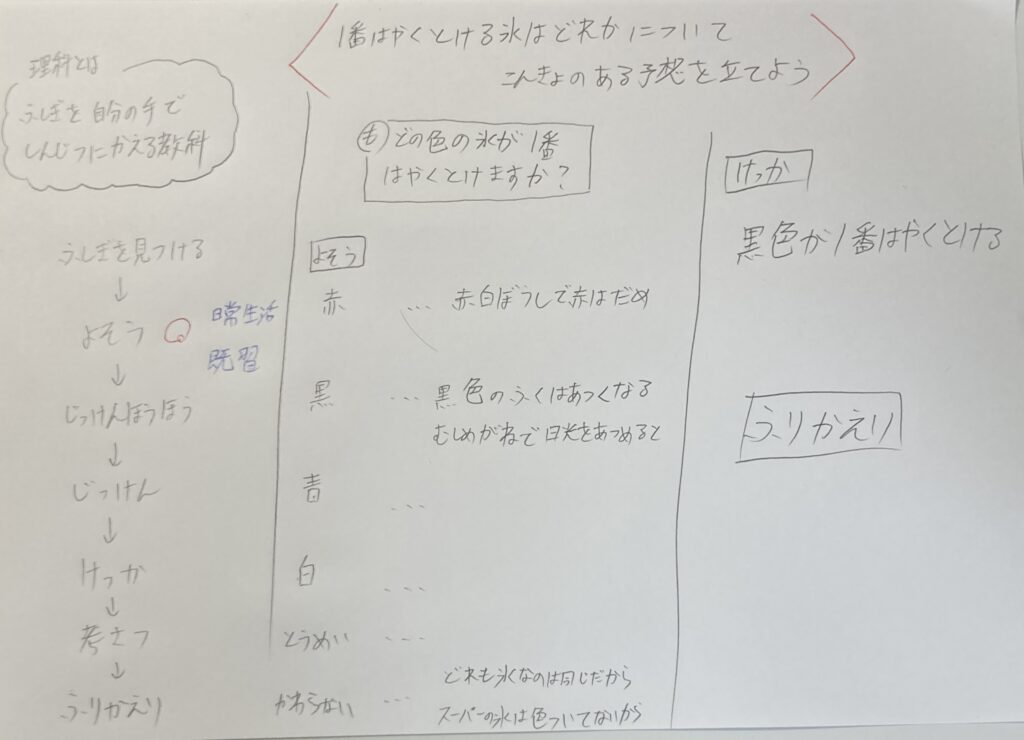 1番はやくとける氷はどれかについて
こんきょのある予想を立てよう
理科とは
ふしぎを自分の手で
しんじつにかえる教科
ふしぎを見つける
↓
よそう
日常生活
既習
↓
じっけんほうほう
↓
じっけん
↓
けっか
↓
考さつ
↓
ふりかえり
も どの色の氷が1番
はやくとけますか?
よそう
赤 … 赤白ぼうしで赤はだめ
黒 … 黒色のふくはあつくなる
むしめがねで日光をあつめると
青 …
白 …
とうめい …
かわらない … どれも氷なのは同じだから
スーパーの氷は色ついてないから
けっか
黒色が1番はやくとける
ふりかえり